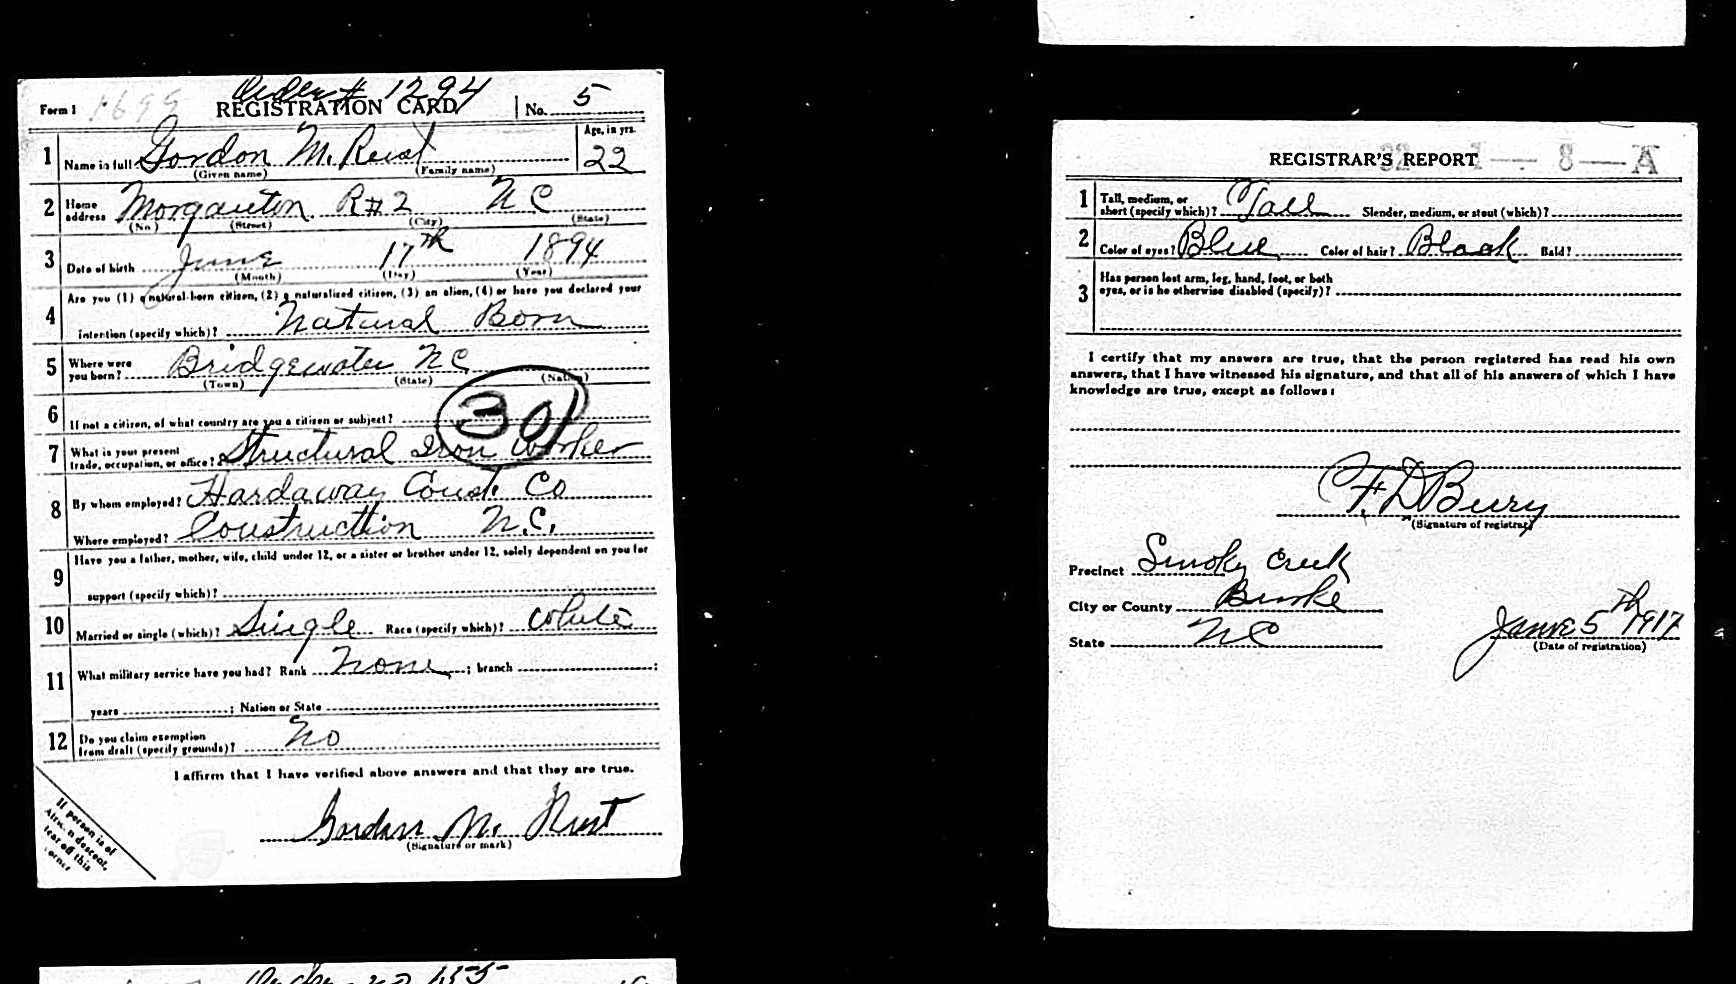 Order # 1294
Form 1 1699 REGISTRATION CARD No. 5
Age, in yrs.
1 Name in full Gordon M. Rust 22
(Given name) (Family name)
2 Home address Morganton R#2 NC
(No.) (Street) (City) (State)
3 Date of birth June 17th 1894
(Month) (Day) (Year)
4 Are you (1) a natural-born citizen, (2) a naturalized citizen, (3) an alien, (4) or have you declared your
intention (specify which)? Natural Born
5 Where were you born? Bridgewater NC
(Town) (State) (Nation)
30
6 If not a citizen, of what country are you a citizen or subject?
7 What is your present trade, occupation, or office? Structural Iron Worker
8 By whom employed? Hardaway Const. Co
Where employed? Construction N.C.
9 Have you a father, mother, wife, child under 12, or a sister or brother under 12, solely dependent on you for
support (specify which)?
10 Married or single (which)? Single Race (specify which)? White
11 What military service have you had? Rank None ; branch ;
years ; Nation or State
12 Do you claim exemption from draft (specify grounds)? No
I affirm that I have verified above answers and that they are true.
Gordon M. Rust
(Signature or mark)
If person is of
African descent,
tear off this
corner
REGISTRAR'S REPORT 32 - 1 - 8 - A
1 Tall, medium, or short (specify which)? Tall Slender, medium, or stout (which)?
2 Color of eyes? Blue Color of hair? Black Bald?
3 Has person lost arm, leg, hand, foot, or both
eyes, or is he otherwise disabled (specify)?
I certify that my answers are true, that the person registered has read his own
answers, that I have witnessed his signature, and that all of his answers of which I have
knowledge are true, except as follows:
F. D. Berry
(Signature of registrar)
Precinct Smoky Creek
City or County Burke
State NC
June 5th 1917
(Date of registration)